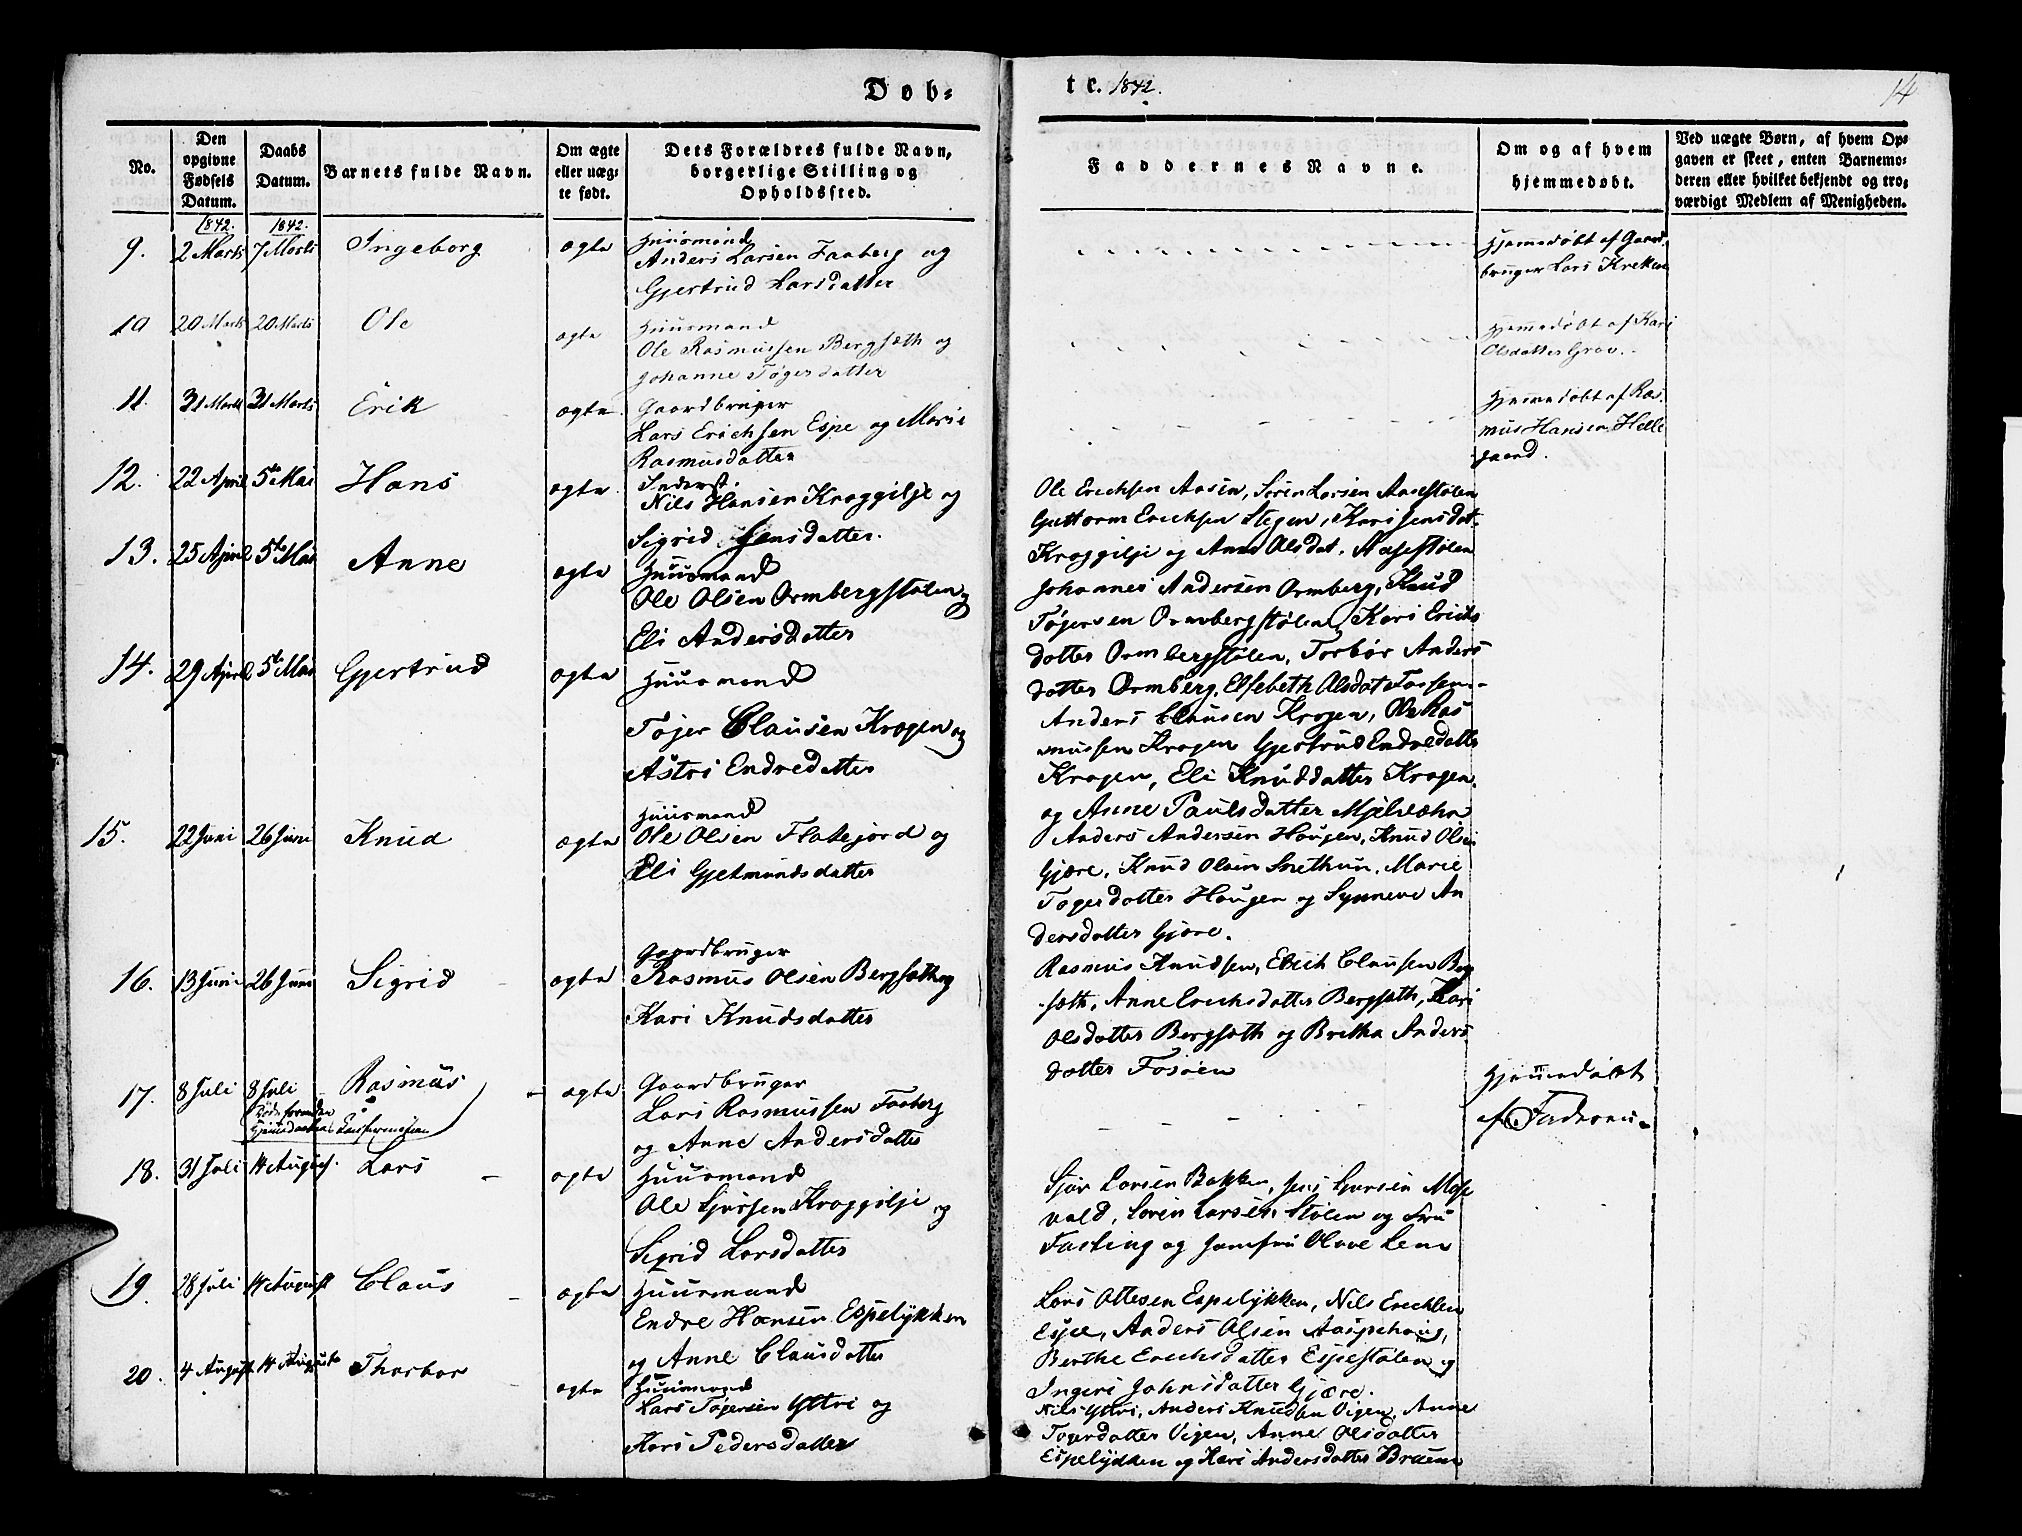 Døb-
te. 1842.
14
No.
Den opgivne Fødsels Datum.
Daabs Datum.
Barnets fulde Navn.
Om ægte eller uægte født.
Dets Forældres fulde Navn, borgerlige Stilling og Opholdssted.
Faddernes Navne.
Om og af hvem hjemmedøbt.
Ved uægte Børn, af hvem Opgaven er skeet, enten Barnemoderen eller hvilket bekjendt og troværdigt Medlem af Menigheden.
1842.
1842.
9. 2 Marts 7 Marts Ingeborg ægte Huusmand
Anders Larsen Faaberg og
Gjertrud Larsdatter
Hjemedøbt af Gaard-
bruger Lars Kreken
10 20 Marts 20 Marts Ole ægte Huusmand
Ole Rasmussen Bergsæth og
Johanne Tøgersdatter
Hjemedøbt af Kari
Olsdatter Grov.
11. 31 Marts 31 Marts Erik ægte Gaardbruger
Lars Erichsen Espe og Marie
Rasmusdatter
Hjemedøbt af Ras-
mus Hansen Helle
gaard.
12. 22 April 5te Mai Hans ægte Inderst.
Nils Hansen Kroggilje og
Sigrid Jensdatter.
Ole Erichsen Aasen, Søren Larsen Aasestølen
Guttorm Erichsen Stegen, Kari Jensdat.
Kroggilje og Anne Olsdat. Aasestølen
13. 25 April 5te Mai Anne ægte Huusmand
Ole Olsen Ormbergstølen og
Eli Andersdatter
Johannes Andersen Ormberg, Knud
Tøgersen Ormbergstølen, Kari Erichs
datter Ormbergstølen, Torbør Anders
datter Ormberg, Elsebeth Olsdat
14. 29 April 5te Mai Gjertrud ægte Huusmand
Tøger Clausen Krogen og
Astri Endredatter
Anders Clausen Krogen, Ole Ras
mussen Krogen Gjertrud Endredatter
Krogen, Eli Knuddatter Krogen.
og Anne Paulsdatter
15. 22 Juni 26 Juni Knud ægte Huusmand
Ole Olsen Flatejord og
Eli Gjetmundsdatter
Anders Andersen Haugen, Knud Olsen
Gjøre, Knud Olsen Snethun, Marie
Tøgersdatter Haugen og Synneve An
dersdatter Gjøre.
16. 13 Juni 26 Juni Sigrid ægte Gaardbruger
Rasmus Olsen Bergsæth og
Kari Knudsdatter
Rasmus Knudsen, Erich Clausen Berg
sæth, Anne Erichsdatter Bergsæth, Kari
Olsdatter Bergsæth og Britha Anders
datter Fosøen
17. 8 Juli 8 Juli Rasmus ægte Gaardbruger
Lars Rasmussen Faaberg
og Anne Andersdatter
Hjemmedøbt
af Faderen
18. 31 Juli 14 August. Lars ægte Huusmand
Ole Sjursen Kroggilje og
Sigrid Larsdatter
Sjur Larsen Bakken, Jens Sjursen Mose
vald, Søren Larsen Stølen og Fru
Fasting og Jomfru Olave Lem
19. 28 Juli 14 August Claus ægte Huusmand
Endre Hansen Espelykken
og Anne Clausdatter
Lars Ottesen Espelykken, Nils Erichsen
Espe, Anders Olsen Aaspehaug,
Berthe Erichsdatter Espestølen og
Ingeri Johnsdatter Gjøre.
20. 4 August 14 August Thorbor ægte Huusmand
Lars Tøgersen Yttri og
Kari Pedersdatter
Nils Yttri, Anders Knudsen Vigen, Anne
Tøgersdatter Vigen, Anne Olsdatter
Espelykken og Kari Andersdatter